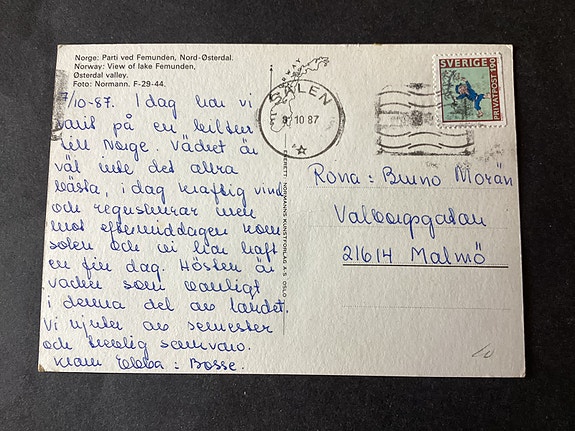 Norge: Parti ved Femunden, Nord-Østerdal.
Norway: View of lake Femunden,
Østerdal valley.
Foto: Normann. F-29-44.
7/10-87. I dag har vi
varit på en biltur
till Norge. Vädret är
väl inte det allra
bästa, i dag kraftig vind
och regnskurar men
mot eftermiddagen kom
solen och vi har haft
en fin dag. Hösten är
vacker som vanligt
i denna del av landet.
Vi njuter av semester
och trevlig samvaro.
Kram Ebba : Bosse.
ENERETT: NORMANNS KUNSTFORLAG A.S OSLO
NORWAY
SÄLEN
10 87
SVERIGE
PRIVATPOST 190
Rona : Bruno Morän
Valborgsgatan
21614 Malmö